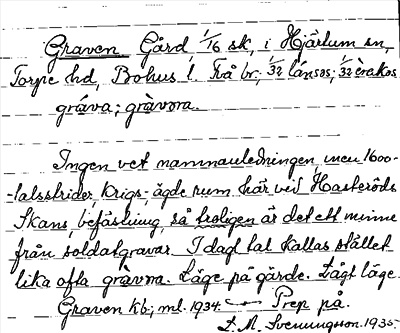 Graven Gård 1/16 sk, i Hjärtum sn,
Torpe hd, Bohus l. Två br; 1/32 lánsas; 1/32 èrakas
gráva; gràvᴏra.
Ingen vet namnanledningen men 1600-
-talsstrider, Krigs-, ägde rum här vid Hasteröds
Skans befästning, så troligen är det ett minne
från soldatgravar. I dagl tal kallas stället
lika ofta gràvᴏra. Läge på gärde. Lågt läge.
Graven kb; ml. 1934. Prep på.
L. M. Svenungsson. 1935-